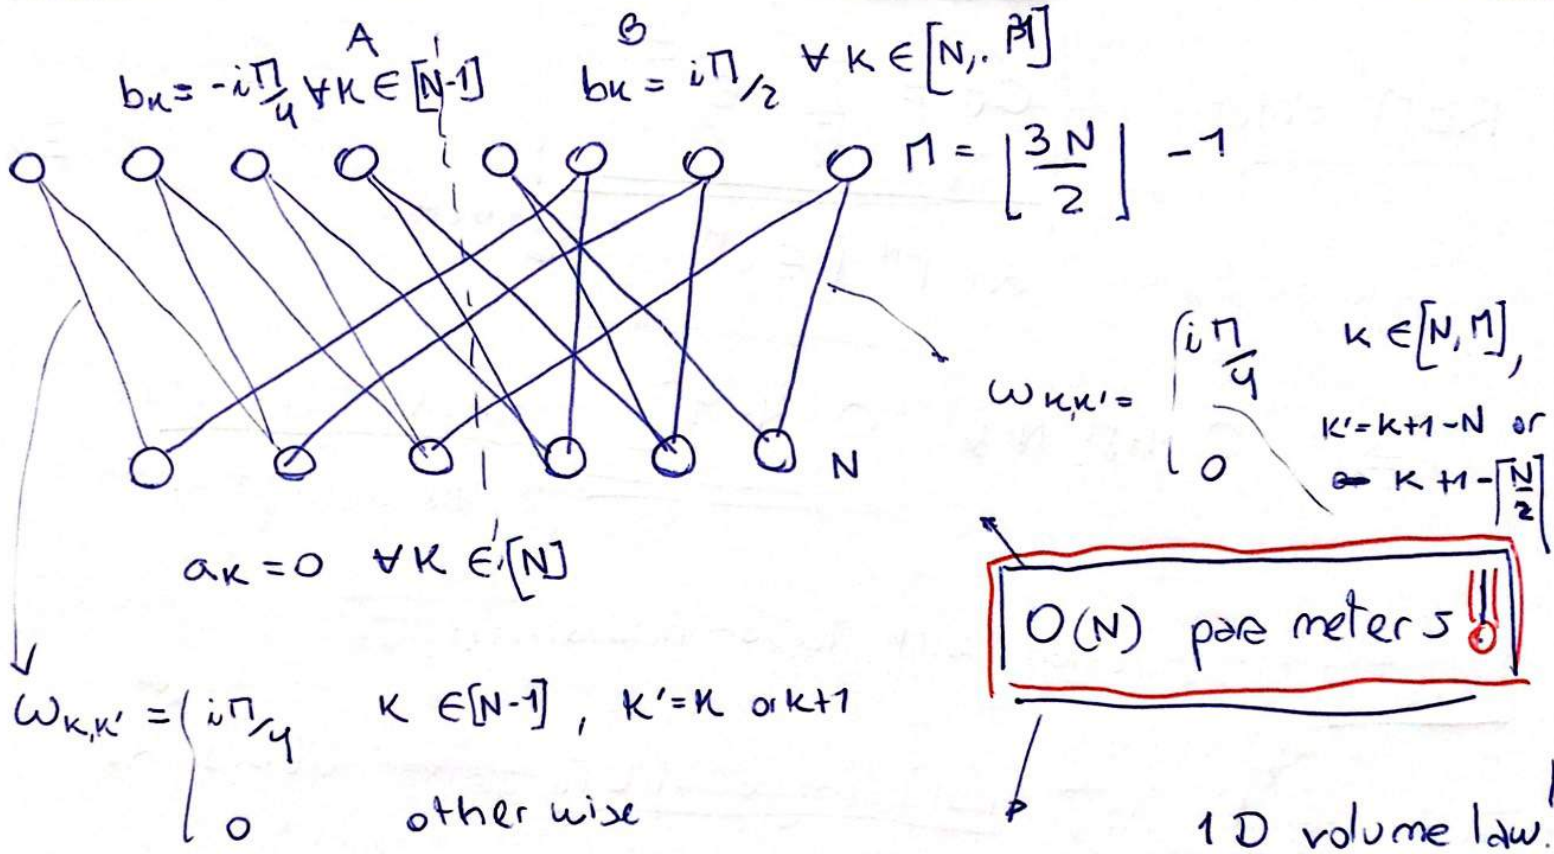 A B
bₖ = -iπ/4 ∀k ∈ [N-1] bₖ = iπ/2 ∀k ∈ [N, M]
M = ⌊3N/2⌋ - 1
ωₖ,ₖ' = { iπ/4 k ∈ [N, M],
k' = k+1-N or
k+1-⌈N/2⌉
0
N
aₖ = 0 ∀k ∈ [N]
O(N) parameters !!!
ωₖ,ₖ' = { iπ/4 k ∈ [N-1], k' = k or k+1
0 otherwise
1D volume law!